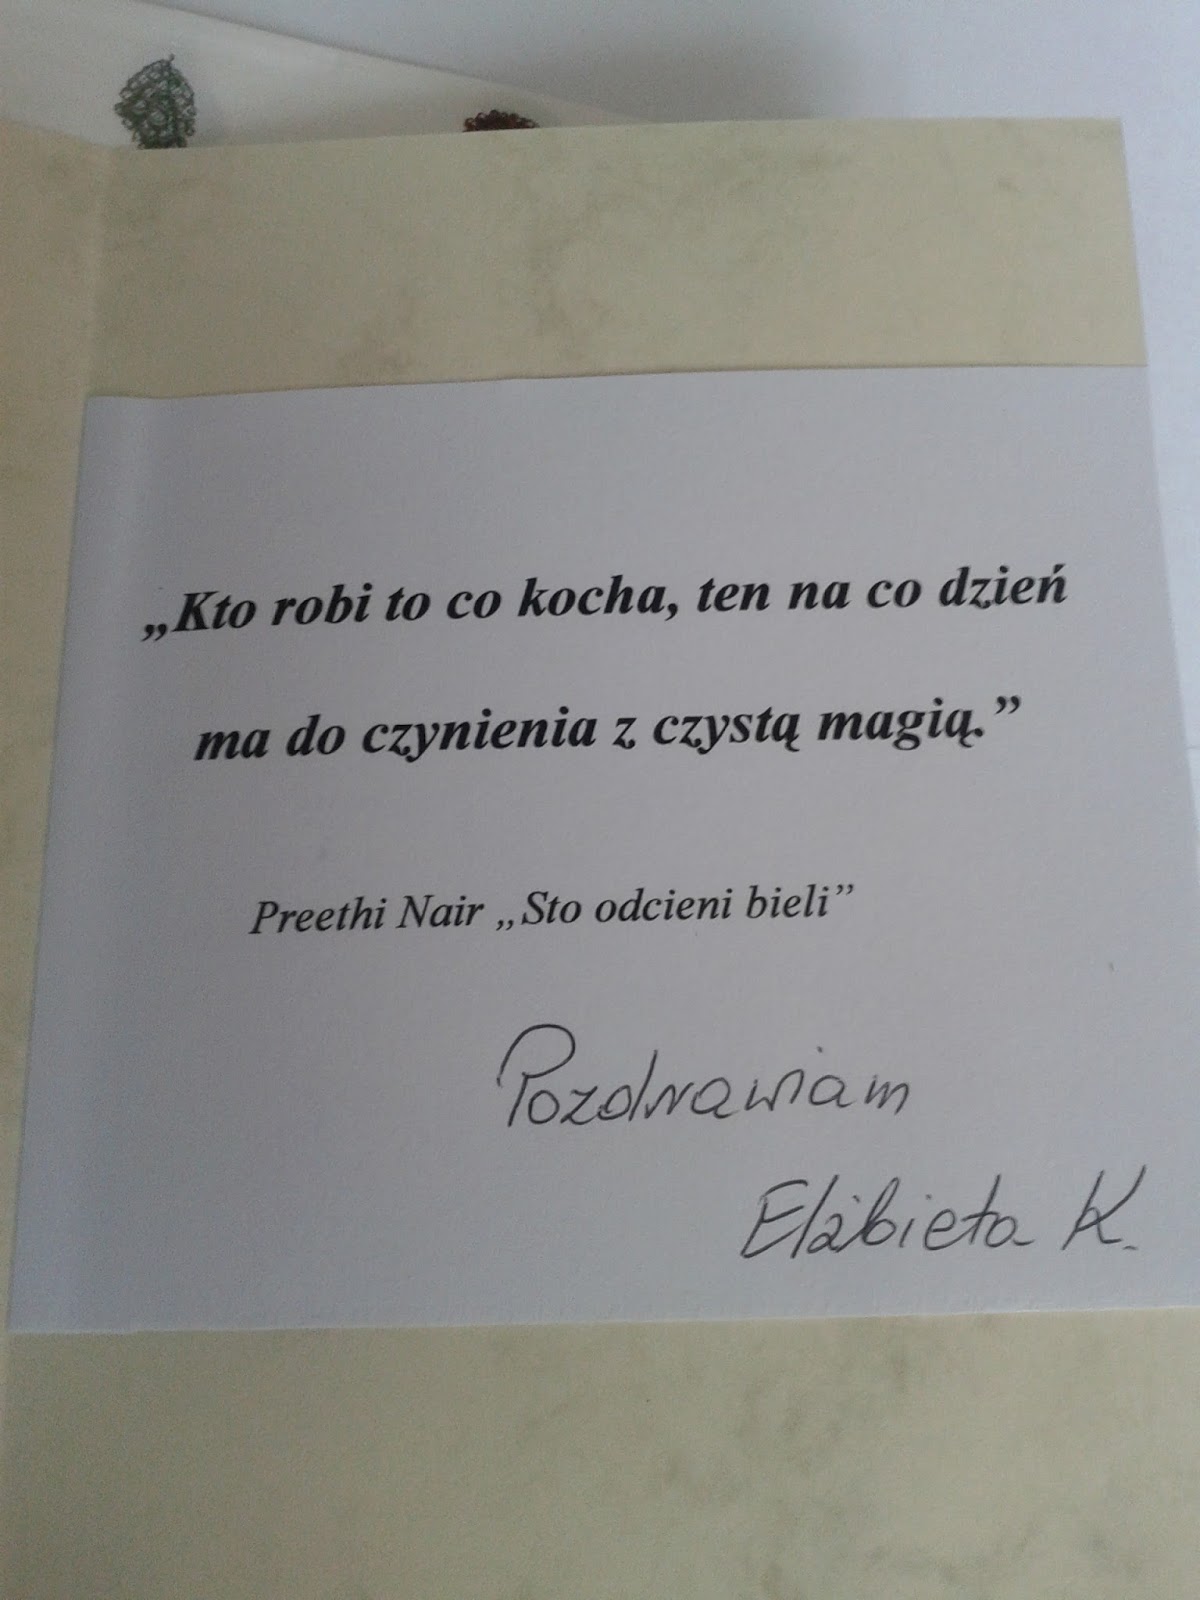 „Kto robi to co kocha, ten na co dzień
ma do czynienia z czystą magią.”
Preethi Nair „Sto odcieni bieli”
Pozdrawiam
Elżbieta K.